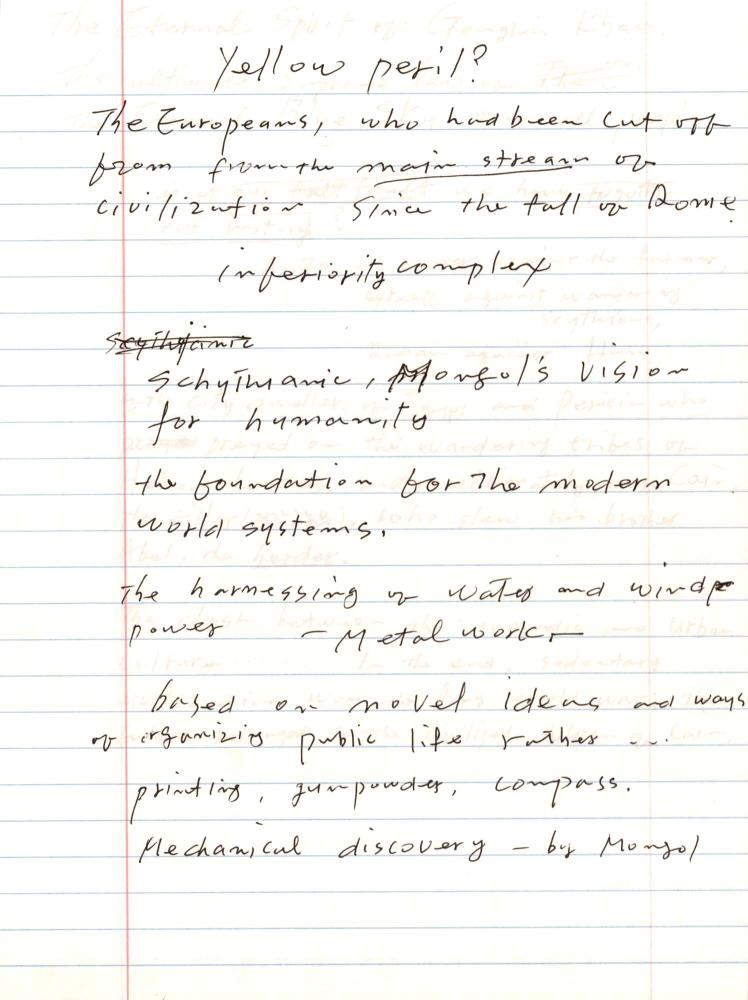 Yellow peril?
The Europeans, who had been cut off
from from the main stream of
civilization since the fall of Rome
inferiority complex
Schythianic, Mongol's vision
for humanity
the foundation for The modern
world systems.
The harnessing of water and wind
power - Metal work -
based on novel ideas and ways
of organizing public life rather ...
printing, gunpowder, compass.
Mechanical discovery - by Mongol